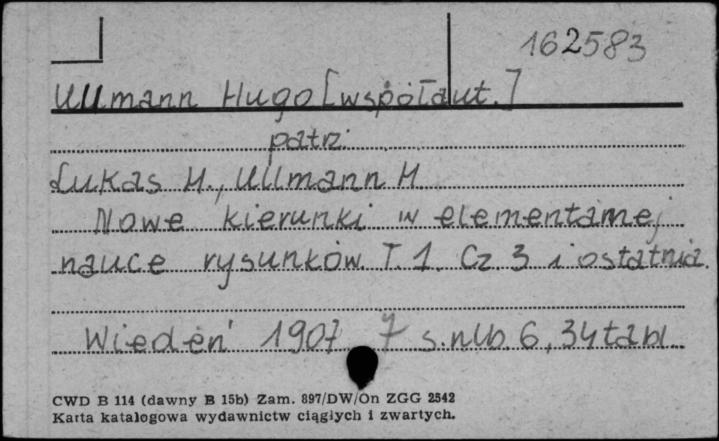 162583
Ullmann Hugo [współaut.]
patrz
Lukas H., Ullmann H
Nowe kierunki w elementarnej
nauce rysunków. T. 1. Cz. 3 i ostatnia.
Wiedeń 1907 7 s. nlb 6, 34 tabl.
CWD B 114 (dawny B 15b) Zam. 897/DW/On ZGG 2542
Karta katalogowa wydawnictw ciągłych i zwartych.